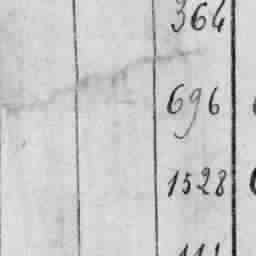 364
696
1528